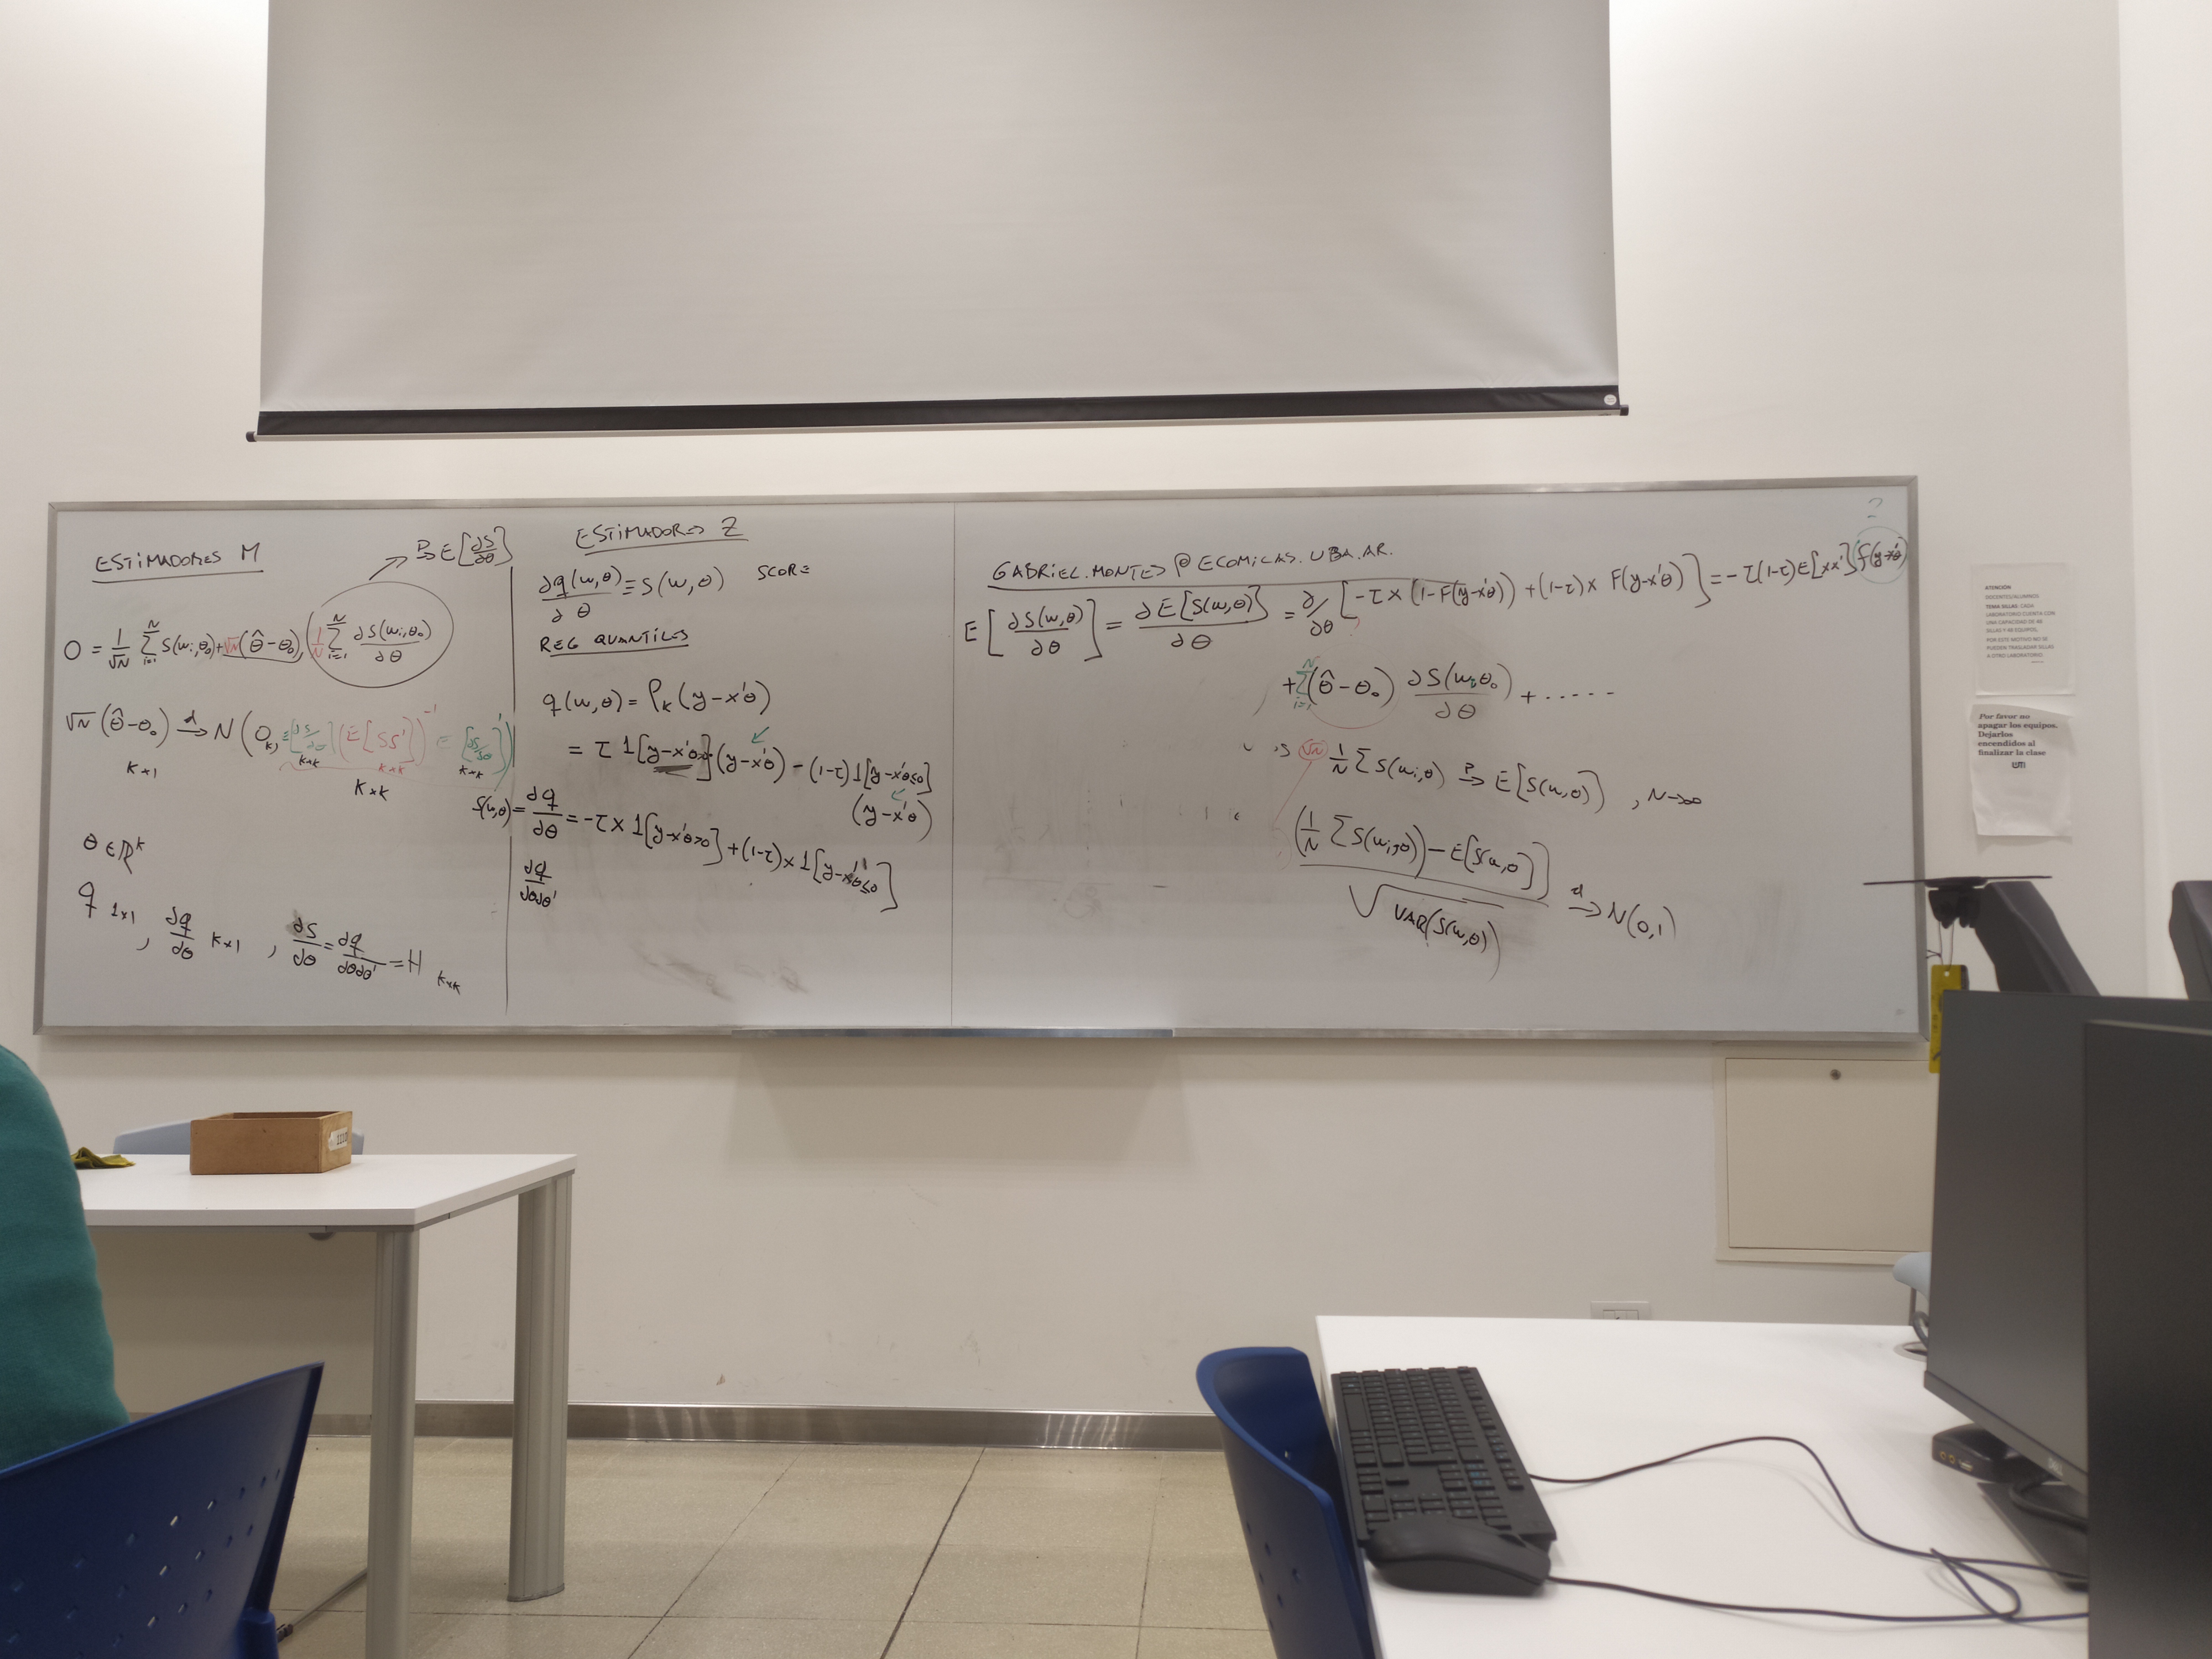 ESTIMADORES M
→ᴾ E[∂S/∂θ]
0 = 1/√N Σᵢ₌₁ᴺ S(wᵢ,θ₀) + √N(θ̂-θ₀) (1/N Σᵢ₌₁ᴺ ∂S(wᵢ,θ₀)/∂θ)
√N (θ̂-θ₀) →ᵈ N(0ₖ, E[∂S/∂θ] (E[SS'])⁻¹ E[∂S/∂θ]')
K×1
K×K K×K K×K
K×K
θ ∈ ℝᴷ
q 1×1, ∂q/∂θ K×1, ∂S/∂θ = ∂q/∂θ∂θ' = H K×K
ESTIMADORES Z
∂q(w,θ)/∂θ ≡ S(w,θ) SCORE
REG QUANTILES
q(w,θ) = ρ_K(y-x'θ)
= τ 1[y-x'θ>0](y-x'θ) - (1-τ)1[y-x'θ≤0]
(y-x'θ)
S(w,θ) = ∂q/∂θ = -τ x 1[y-x'θ>0] + (1-τ) x 1[y-x'θ≤0]
∂q/∂θ∂θ'
GABRIEL.MONTES@ECOMICAS.UBA.AR.
2
E[∂S(w,θ)/∂θ] = ∂E[S(w,θ)]/∂θ = ∂/∂θ [-τ x (1-F(y-x'θ)) + (1-τ) x F(y-x'θ)] = -τ(1-τ)E[xx'] f(y-x'θ)
?
+ Σᵢ₌₁ᴺ (θ̂-θ₀) ∂S(wᵢ,θ₀)/∂θ + .....
√N 1/N Σ S(wᵢ,θ) →ᴾ E[S(w,θ)], N→∞
(1/N Σ S(wᵢ,θ)) - E[S(w,θ)] / √VAR(S(w,θ)) →ᵈ N(0,1)
ATENCIÓN
DOCENTES/ALUMNOS
TEMA SILLAS: CADA
LABORATORIO CUENTA CON
UNA CAPACIDAD DE 48
SILLAS Y 48 EQUIPOS,
POR ESTE MOTIVO NO SE
PUEDEN TRASLADAR SILLAS
A OTRO LABORATORIO
Por favor no
apagar los equipos.
Dejarlos
encendidos al
finalizar la clase
DELL